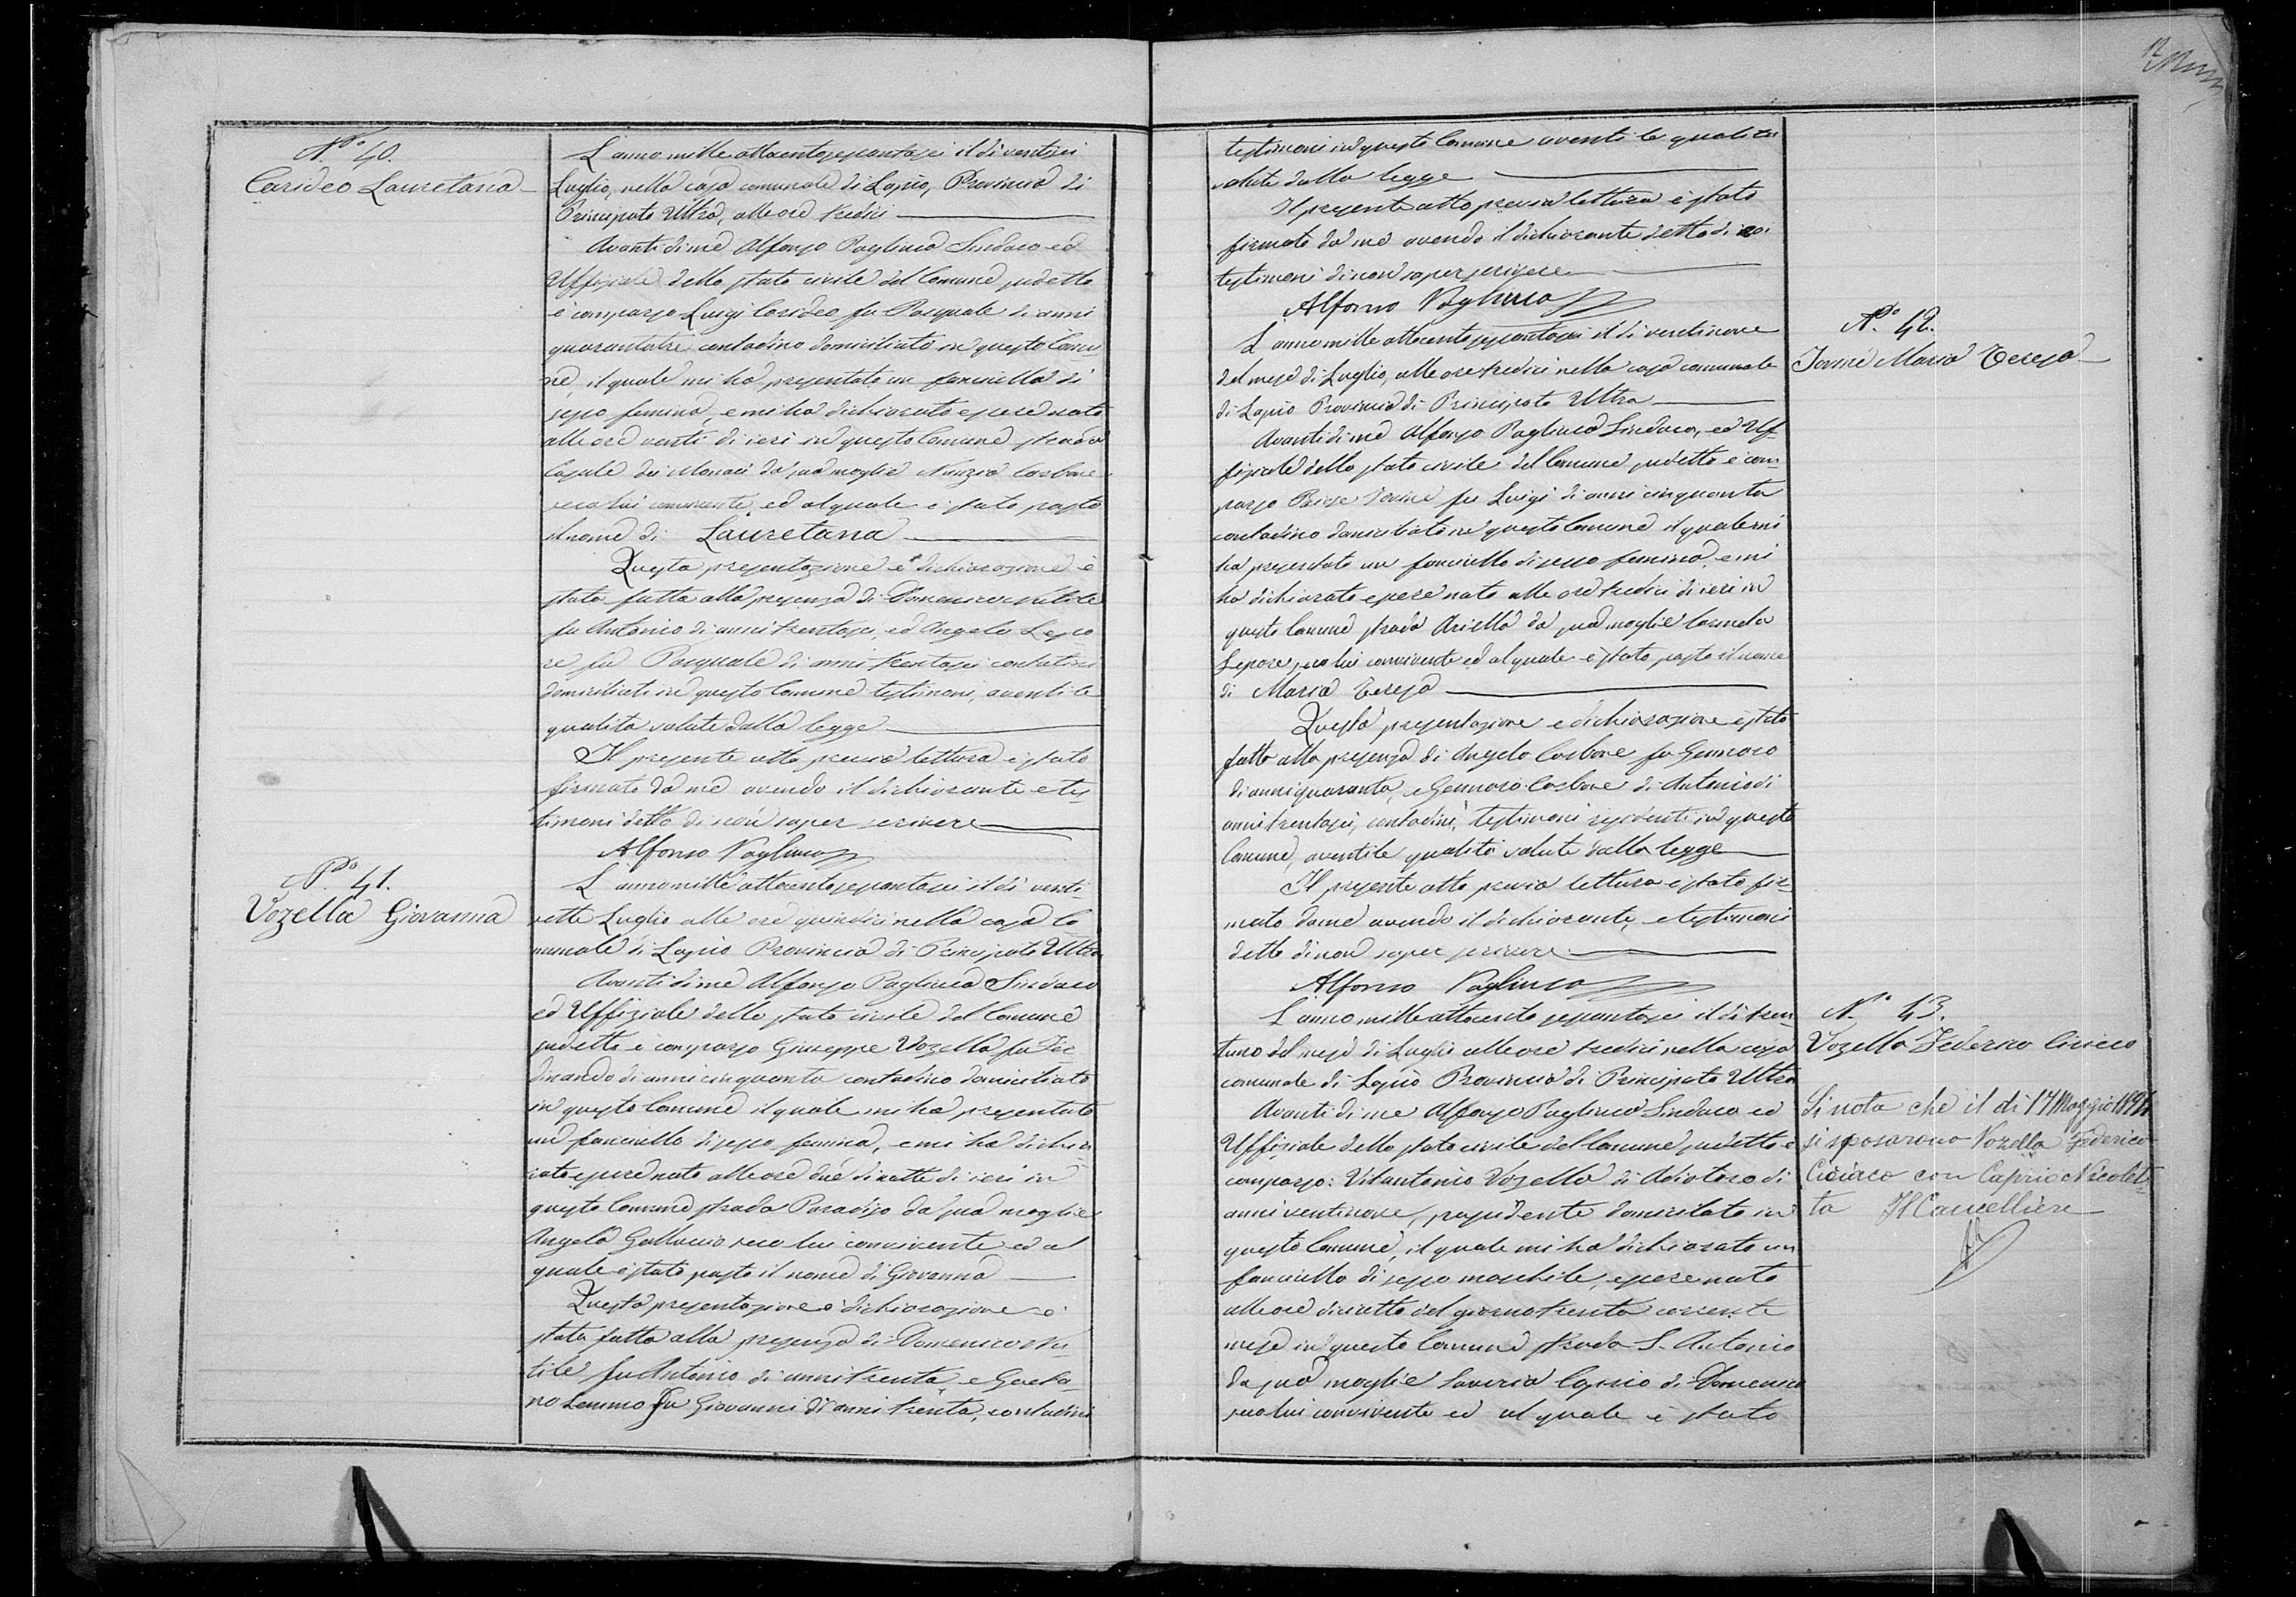 N.° 40.
Carideo Lauretana
L'anno mille ottocentosessantasei il dì ventisei
Luglio, nella casa comunale di Lapio, Provincia di
Principato Ultra, alle ore tredici
Avanti di me Alfonso Pagliuca Sindaco ed
Uffiziale dello stato civile del Comune sudetto
è comparso Luigi Carideo fu Pasquale di anni
quarantatre contadino domiciliato in questo Comu
ne, il quale mi ha presentato un fanciulla di
sesso femina, e mi ha dichiarato essere nato
alle ore venti di ieri in questo Comune strada
Casale dei Monaci da sua moglie Nunzia Carbone
seco lui convivente, ed al quale è stato posto
il nome di Lauretana
Questa presentazione e dichiarazione è
stata fatta alla presenza di Domenico
fu Antonio di anni trentasei, ed Angelo Lepo
re fu Pasquale di anni trentasei contadini
domiciliati in questo Comune testimoni, aventi le
qualità volute dalla legge
Il presente atto previa lettura è stato
firmato da me avendo il dichiarante e tes
timoni detto di non saper scrivere
Alfonso Pagliuca
N.° 41.
Vozella Giovanna
L'anno mille ottocentosessantasei il dì venti
sette Luglio alle ore quindici nella casa Co
munale di Lapio Provincia di Principato Ultra
Avanti di me Alfonso Pagliuca Sindaco
ed Uffiziale dello stato civile del Comune
sudetto è comparso Giuseppe Vozella fu Fer
dinando di anni cinquanta contadino domiciliato
in questo Comune il quale mi ha presentato
un fanciullo di sesso femina, e mi ha dichia
rato essere nato alle ore due di notte di ieri in
questo Comune strada Paradiso da sua moglie
Angela Galluccio seco lui convivente ed al
quale è stato posto il nome di Giovanna
Questa presentazione e dichiarazione è
stata fatta alla presenza di Domenico
fu Antonio di anni trenta, e Gaeta
no Lemmo fu Giovanni di anni trenta, contadini
testimoni in questo Comune aventi le qualità
volute dalla legge
Il presente atto previa lettura è stato
firmato da me avendo il dichiarante detto di coi
testimoni di non saper scrivere
Alfonso Pagliuca
N.° 42.
Iovine Maria Teresa
L'anno mille ottocentosessantasei il dì ventinove
del mese di Luglio, alle ore tredici nella casa comunale
di Lapio Provincia di Principato Ultra
Avanti di me Alfonso Pagliuca Sindaco, ed Uf
fiziale dello stato civile del Comune sudetto è com
parso Iovine fu Luigi di anni cinquanta
contadino domiciliato in questo Comune il quale mi
ha presentato un fanciullo di sesso femina, e mi
ha dichiarato essere nato alle ore tredici di ieri in
questo Comune strada Ariella da sua moglie Carmela
Lepore, seco lui convivente ed al quale è stato posto il nome
di Maria Teresa
Questa presentazione e dichiarazione è stata
fatta alla presenza di Angelo Carbone fu Gennaro
di anni quaranta, e Gennaro Carbone di Antonio di
anni trentasei, contadini, testimoni residenti in questo
Comune, aventi le qualità volute dalla legge
Il presente atto previa lettura è stato fir
mato da me avendo il dichiarante, e testimoni
detto di non saper scrivere
Alfonso Pagliuca
N.° 43.
Vozella Federico Ciriaco
L'anno mille ottocento sessantasei il dì tren
tuno del mese di Luglio alle ore tredici nella casa
comunale di Lapio Provincia di Principato Ultra
Avanti di me Alfonso Pagliuca Sindaco ed
Uffiziale dello stato civile del Comune sudetto è
comparso: Vitantonio Vozella di Adiutore di
anni ventinove, possidente domiciliato in
questo Comune, il quale mi ha dichiarato un
fanciullo di sesso maschile, essere nato
alle ore diciotto del giorno trenta corrente
mese in questo Comune strada S. Antonio
da sua moglie Saveria di Domenico
seco lui convivente ed al quale è stato
Si nota che il dì 17 Maggio 1894
si sposarono Vozella Federico
Ciriaco con Caprio Nicolet
ta Il Cancelliere